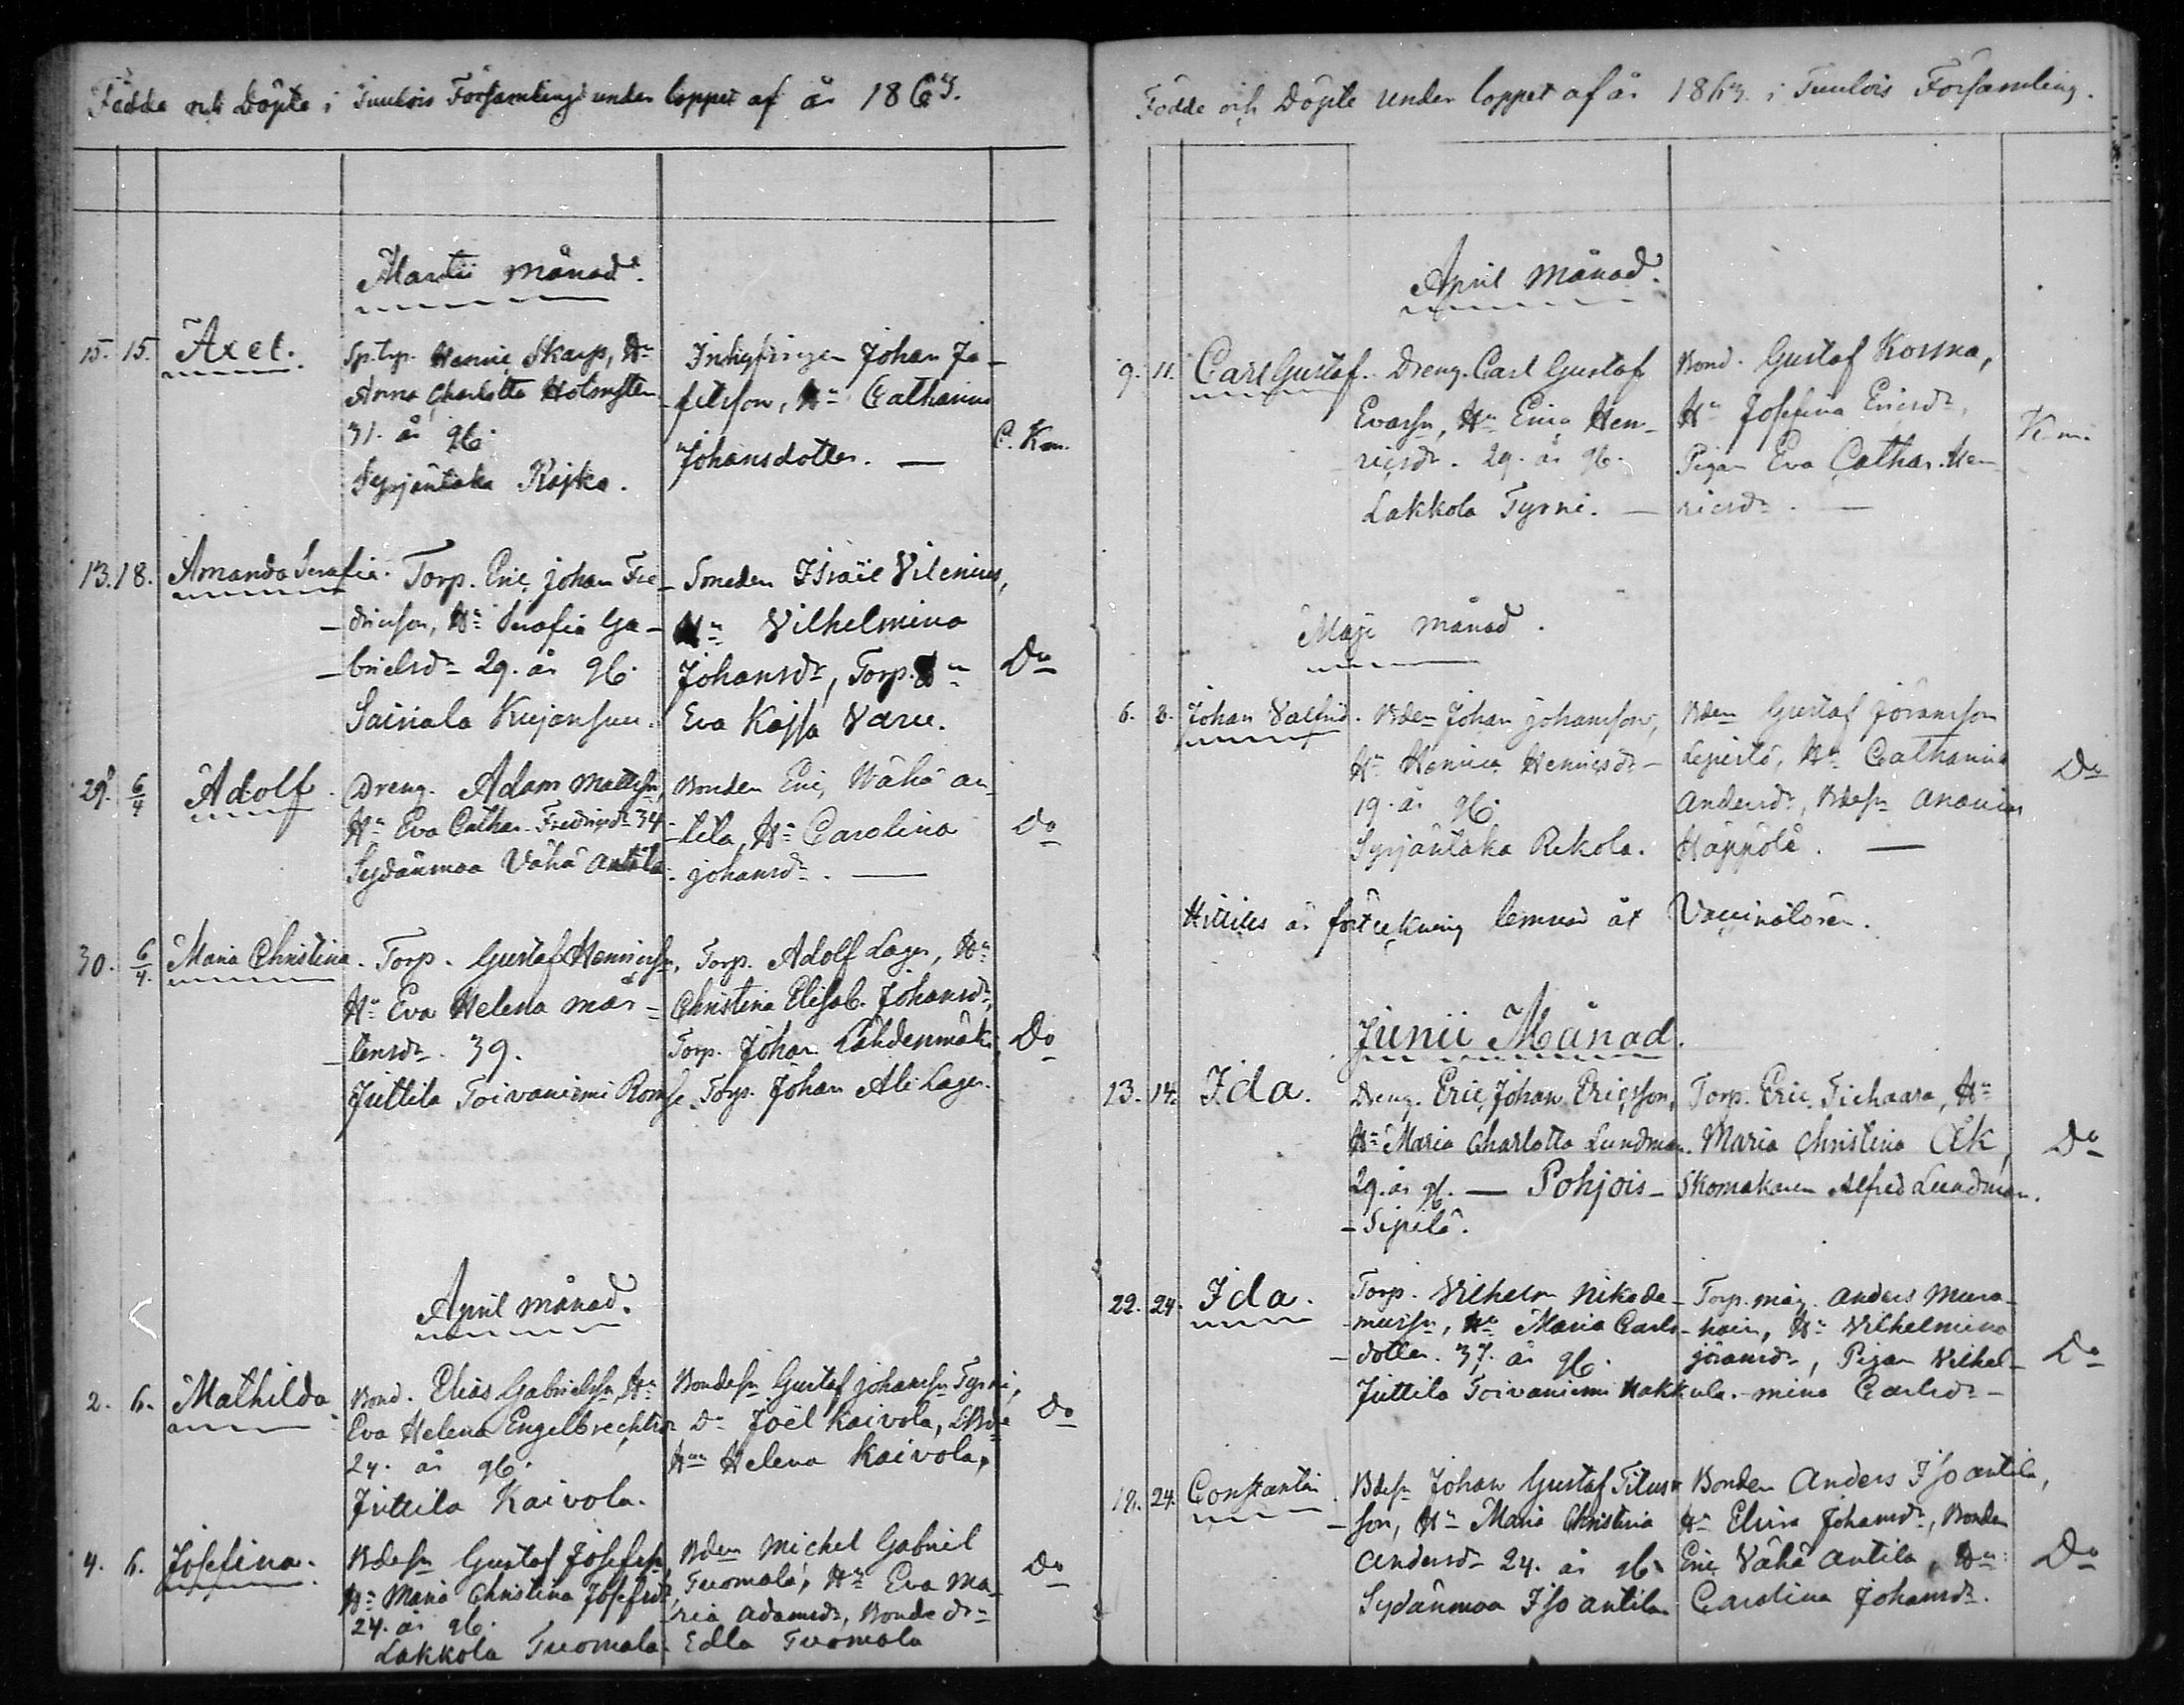 Födde och Döpte i Tuulois Församling under loppet af år 1863.
Martii månad.
15. 15. Axel.
Sp.torp. Henric Skarp, Hu
Anna Charlotta Holmsten
31. år gl.
Syrjäntaka Rajka.
Johan Jo-
sefsson, Hu Catharina
Johansdotter. —
C. Km.
13. 18. Amanda Serafia.
Torp. Eric Johan Fre-
-dricsson, Hu Serafia Ga-
-brielsdr 29. år gl.
Sairiala Kujansuu.
Smeden Israël Vilenius,
Hu Vilhelmina
Johansdr, Torp. Hu
Eva Kajsa Varu.
Do
29. 6/4 Adolf.
Dreng. Adam Mattssn,
Hu Eva Cathar. Fredricsdr 34
Sydänmaa Vähä Antila.
Bonden Eric Wähä an-
-tila, Hu Carolina
johansdr. —
Do
30. 6/4. Maria Christina.
Torp. Gustaf Henricssn,
Hu Eva Helena Mår-
-tensdr. 39.
Juttila Toivaniemi
Torp. Adolf Lager, Hu
Christina Elisab. Johansdr,
Torp. Johan Lähdenmäki,
Torp. Johan Ali Lager.
Do
April månad.
2. 6. Mathilda
Bond. Elias Gabrielssn, Hu
Eva Helena Engelbrechtsdr
24. år gl.
Juttila Kaivola.
Bondesn Gustaf johanssn Tyrni,
Do Joël Kaivola,
Hun Helena Kaivola,
Do
4. 6. Josefina.
Bdesn Gustaf Josefssn,
Hu Maria Christina Josefsdr,
24. år gl.
Lakkola Tuomala.
Bden Michel Gabriel
Tuomala, Hu Eva Ma-
ria Adamsdr, Bonde dr
Edla Tuomala
Do
Födde och Döpte under loppet af år 1863. i Tuulois Församling.
April månad.
9. 11. Carl Gustaf.
Dreng. Carl Gustaf
Evassn, Hu Erica Hen-
ricsdr. 29. år gl.
Lakkola Tyrni. —
Bond. Gustaf Kosma,
Hu Josefina Ericsdr,
Pigan Eva Cathar. Hen-
ricsdr. —
Km.
Maji månad.
6. 8. Johan Valfrid.
Bden Johan johansson,
Hu Henrica Henricsdr
19. år gl.
Syrjäntaka Rekola.
Bden Gustaf Jöransson
Lepistö, Hu Catharina
Andersdr, Bdesn Ananias
Häppölä. —
Do
Hittills är förteckning lemnad åt Vaccinatören.
Junii Månad.
13. 14. Ida.
Dreng. Eric Johan Ericsson,
Hu Maria Charlotta Lundman.
29. år gl. — Pohjois-
-Sipilä.
Torp. Eric Tiehaara, Hu
Maria Christina Åk,
Skomakaren Alfred Lundman.
Do
22. 24. Ida.
Torp. Vilhelm Nikode-
-mussn, Hu Maria Carls-
-dotter. 37. år gl.
Juttila Toivaniemi Hakkula.
Torp. måg. Anders Mura-
-hain, Hu Vilhelmina
jöransdr, Pigan Vilhel-
-mina Carlsdr —
Do
18. 24. Constantin.
Bdesn Johan Gustaf Titus-
-son, Hu Maria Christina
Andersdr 24. år gl.
Sydänmaa Iso antila
Bonden Anders Iso antila,
Hu Elisa Johansdr, Bonden
Eric Vähä Antila, Hu
Carolina Johansdr.
Do